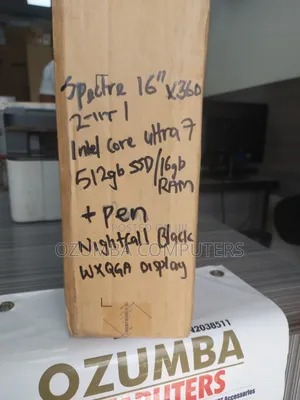 Spectre 16" x360
2-in-1
Intel Core ultra 7
512gb SSD/16gb
RAM
+ Pen
Nightfall Black
OZUMBA COMPUTERS
WXQGA Display
42038511
OZUMBA
COMPUTERS
Accessories